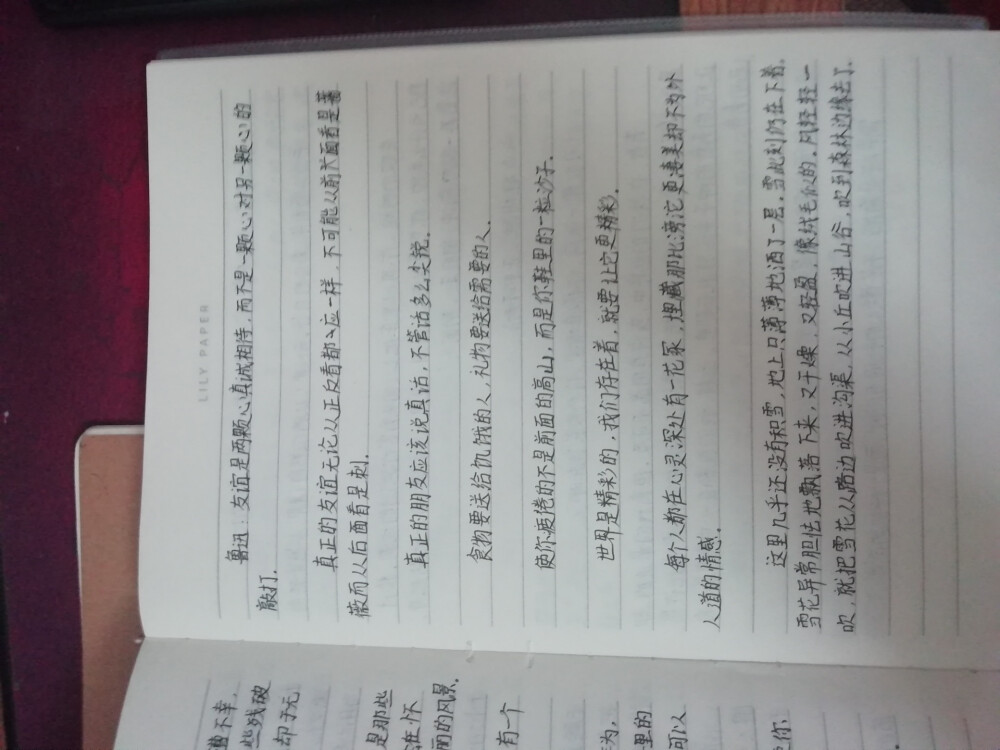 LILY PAPER
鲁迅：友谊是两颗心真诚相待，而不是一颗心对另一颗心的
敲打。
真正的友谊无论从正反看都应一样，不可能从前面看是蔷
薇而从后面看是刺。
真正的朋友应该说真话，不管话多么尖锐。
食物要送给饥饿的人，礼物要送给需要的人。
使你疲倦的不是前面的高山，而是你鞋里的一粒沙子。
世界是精彩的，我们存在着，就要让它更精彩。
每个人都在心灵深处有一花冢，埋藏那比滂沱更凄美却不为外
人道的情感。
这里几乎还没有积雪，地上只薄薄地洒了一层，雪此刻仍在下着。
雪花异常胆怯地飘落下来，又干燥，又轻盈，像绒毛似的。风轻轻一
吹，就把雪花从路边吹进沟渠，从小丘吹进山谷，吹到森林边缘去了。
不幸，
些残破
却于无
是那些
怀
的风景。
有一个
为，
里的
可以
你